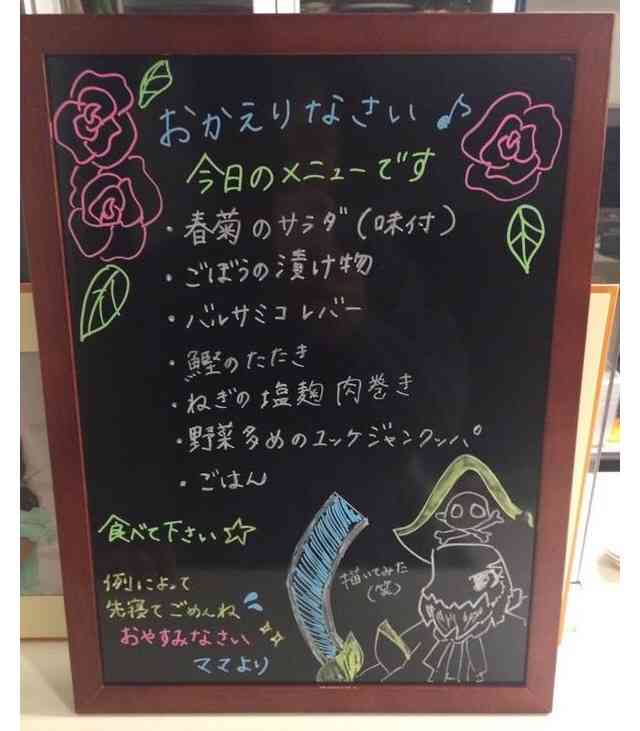 おかえりなさい♪
今日のメニューです
・春菊のサラダ(味付)
・ごぼうの漬け物
・バルサミコレバー
・鰹のたたき
・ねぎの塩麹肉巻き
・野菜多めのユッケジャンクッパ
・ごはん
食べて下さい☆
描いてみた
(笑)
例によって
先寝てごめんね
おやすみなさい
ママより